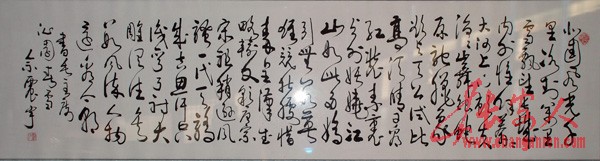 北国风光千
里冰封万里
雪飘望长城
内外惟余莽莽
大河上下顿失
滔滔山舞银蛇
原驰蜡象
欲与天公试比
高须晴日看
红装素裹
分外妖娆江
山如此多娇
引无数英
雄竞折腰惜
秦皇汉武
略输文采唐宗
宋祖稍逊风
骚一代天骄
成吉思汗只
识弯弓射大
雕俱往矣
数风流人物
还看今朝
书毛主席
沁园春雪
长安人
www.changanren.com